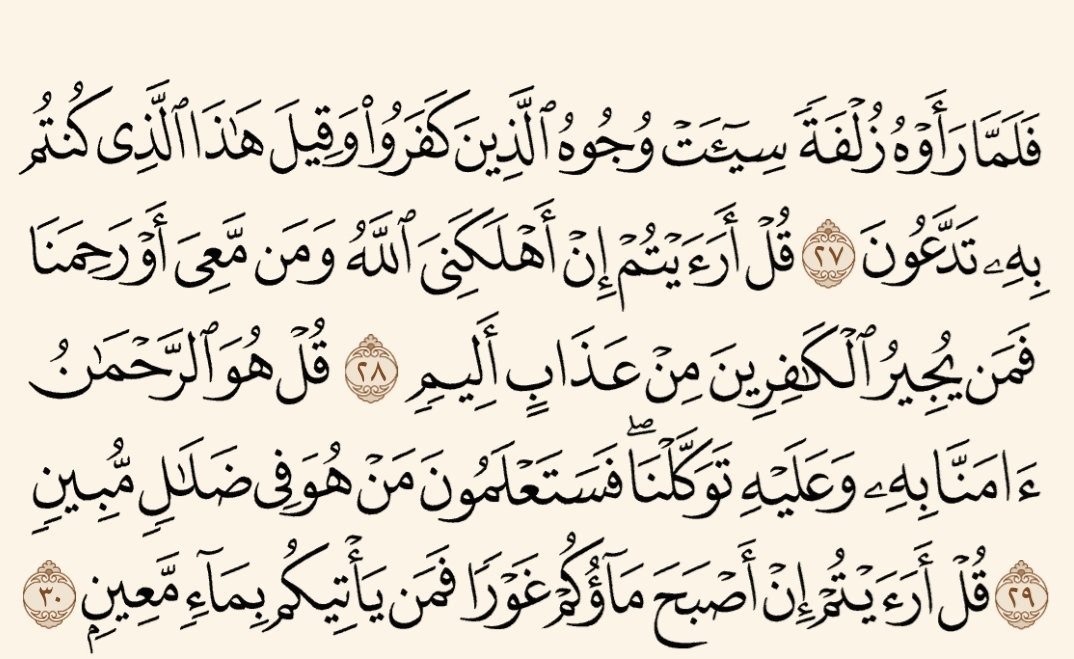 فَلَمَّا رَأَوۡهُ زُلۡفَةٗ سِيٓـَٔتۡ وُجُوهُ ٱلَّذِينَ كَفَرُواْ وَقِيلَ هَٰذَا ٱلَّذِي كُنتُم
بِهِۦ تَدَّعُونَ ٢٧ قُلۡ أَرَءَيۡتُمۡ إِنۡ أَهۡلَكَنِيَ ٱللَّهُ وَمَن مَّعِيَ أَوۡ رَحِمَنَا
فَمَن يُجِيرُ ٱلۡكَٰفِرِينَ مِنۡ عَذَابٍ أَلِيمٖ ٢٨ قُلۡ هُوَ ٱلرَّحۡمَٰنُ
ءَامَنَّا بِهِۦ وَعَلَيۡهِ تَوَكَّلۡنَاۖ فَسَتَعۡلَمُونَ مَنۡ هُوَ فِي ضَلَٰلٖ مُّبِينٖ
٢٩ قُلۡ أَرَءَيۡتُمۡ إِنۡ أَصۡبَحَ مَآؤُكُمۡ غَوۡرٗا فَمَن يَأۡتِيكُم بِمَآءٖ مَّعِينِۭ ٣٠